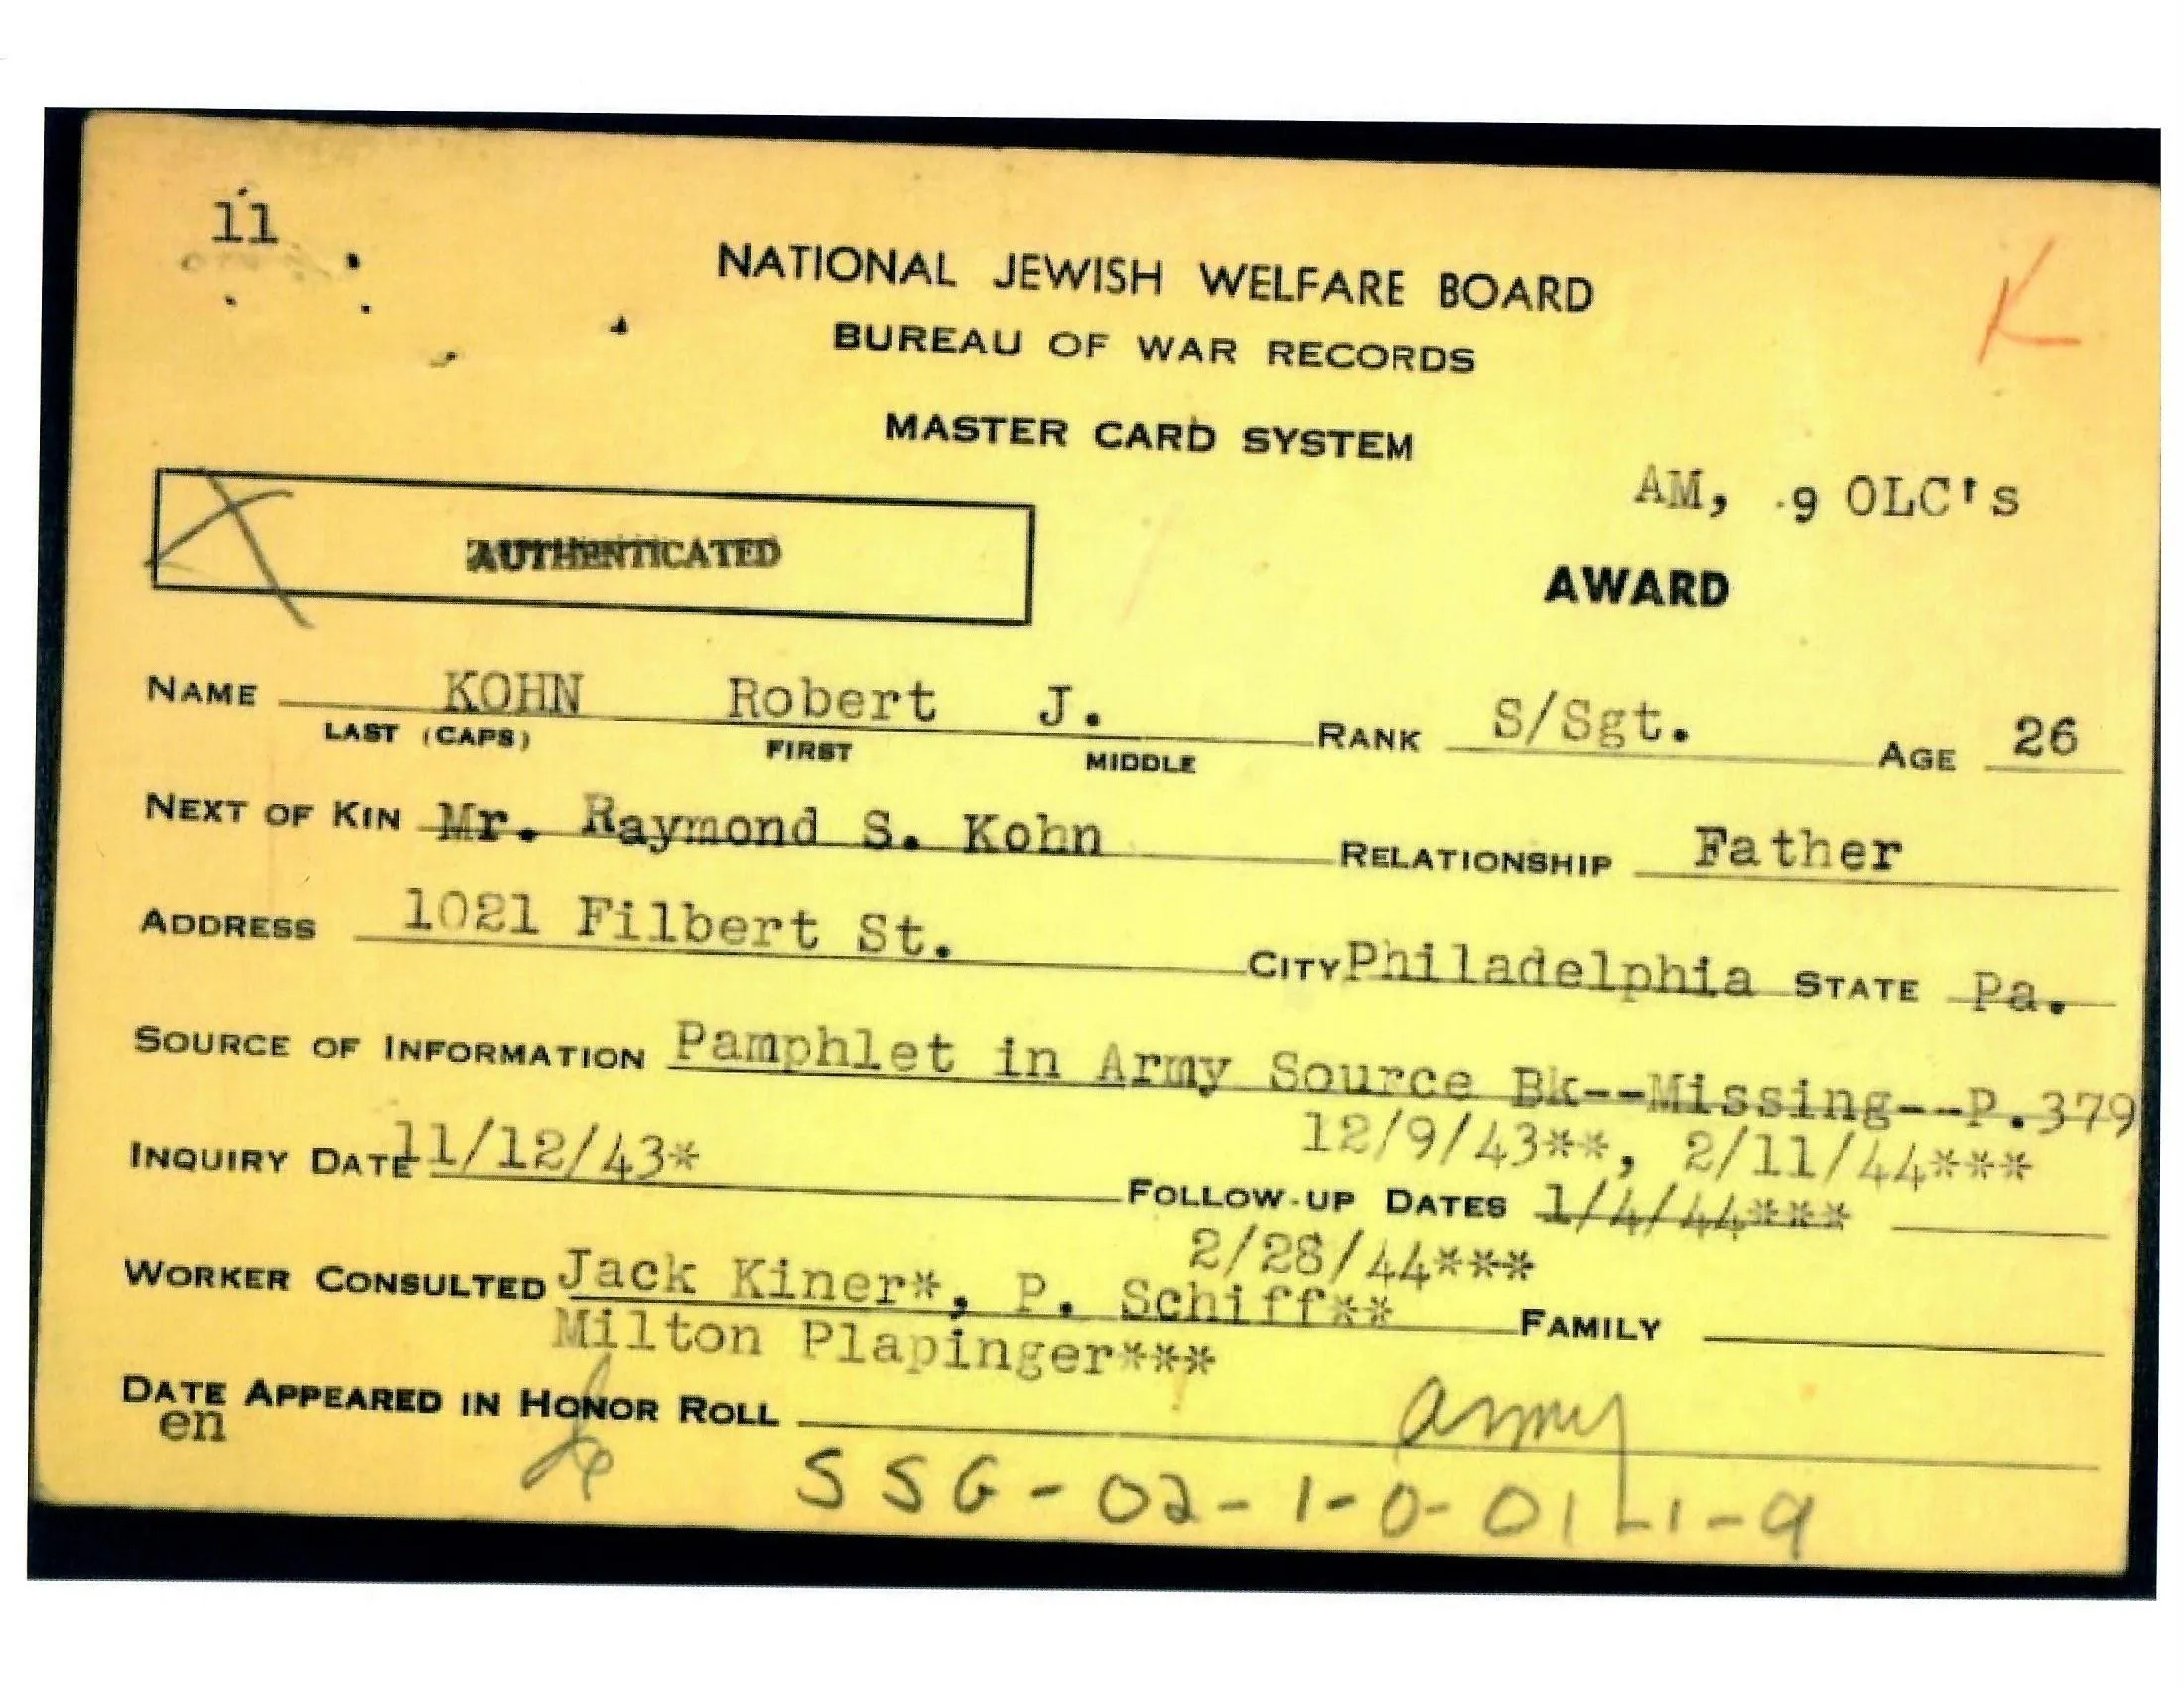 11
NATIONAL JEWISH WELFARE BOARD
K
BUREAU OF WAR RECORDS
MASTER CARD SYSTEM
AM, 9 OLC's
AUTHENTICATED
AWARD
NAME KOHN Robert J. RANK S/Sgt. AGE 26
LAST (CAPS) FIRST MIDDLE
NEXT OF KIN Mr. Raymond S. Kohn RELATIONSHIP Father
ADDRESS 1021 Filbert St. CITY Philadelphia STATE Pa.
SOURCE OF INFORMATION Pamphlet in Army Source Bk--Missing--P.379
12/9/43**, 2/11/44***
INQUIRY DATE 11/12/43* FOLLOW-UP DATES 1/4/44***
2/28/44***
WORKER CONSULTED Jack Kiner*, P. Schiff** FAMILY
Milton Plapinger***
DATE APPEARED IN HONOR ROLL army
en
SSG-02-1-0-01L1-9